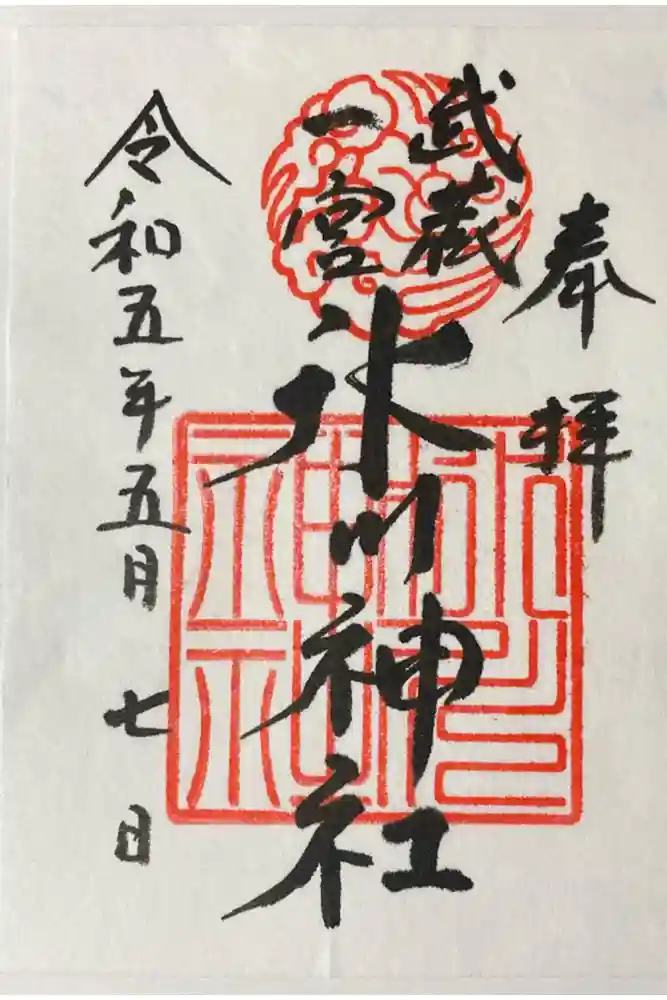 奉拝
武蔵
一宮
氷川神社
令和五年五月七日